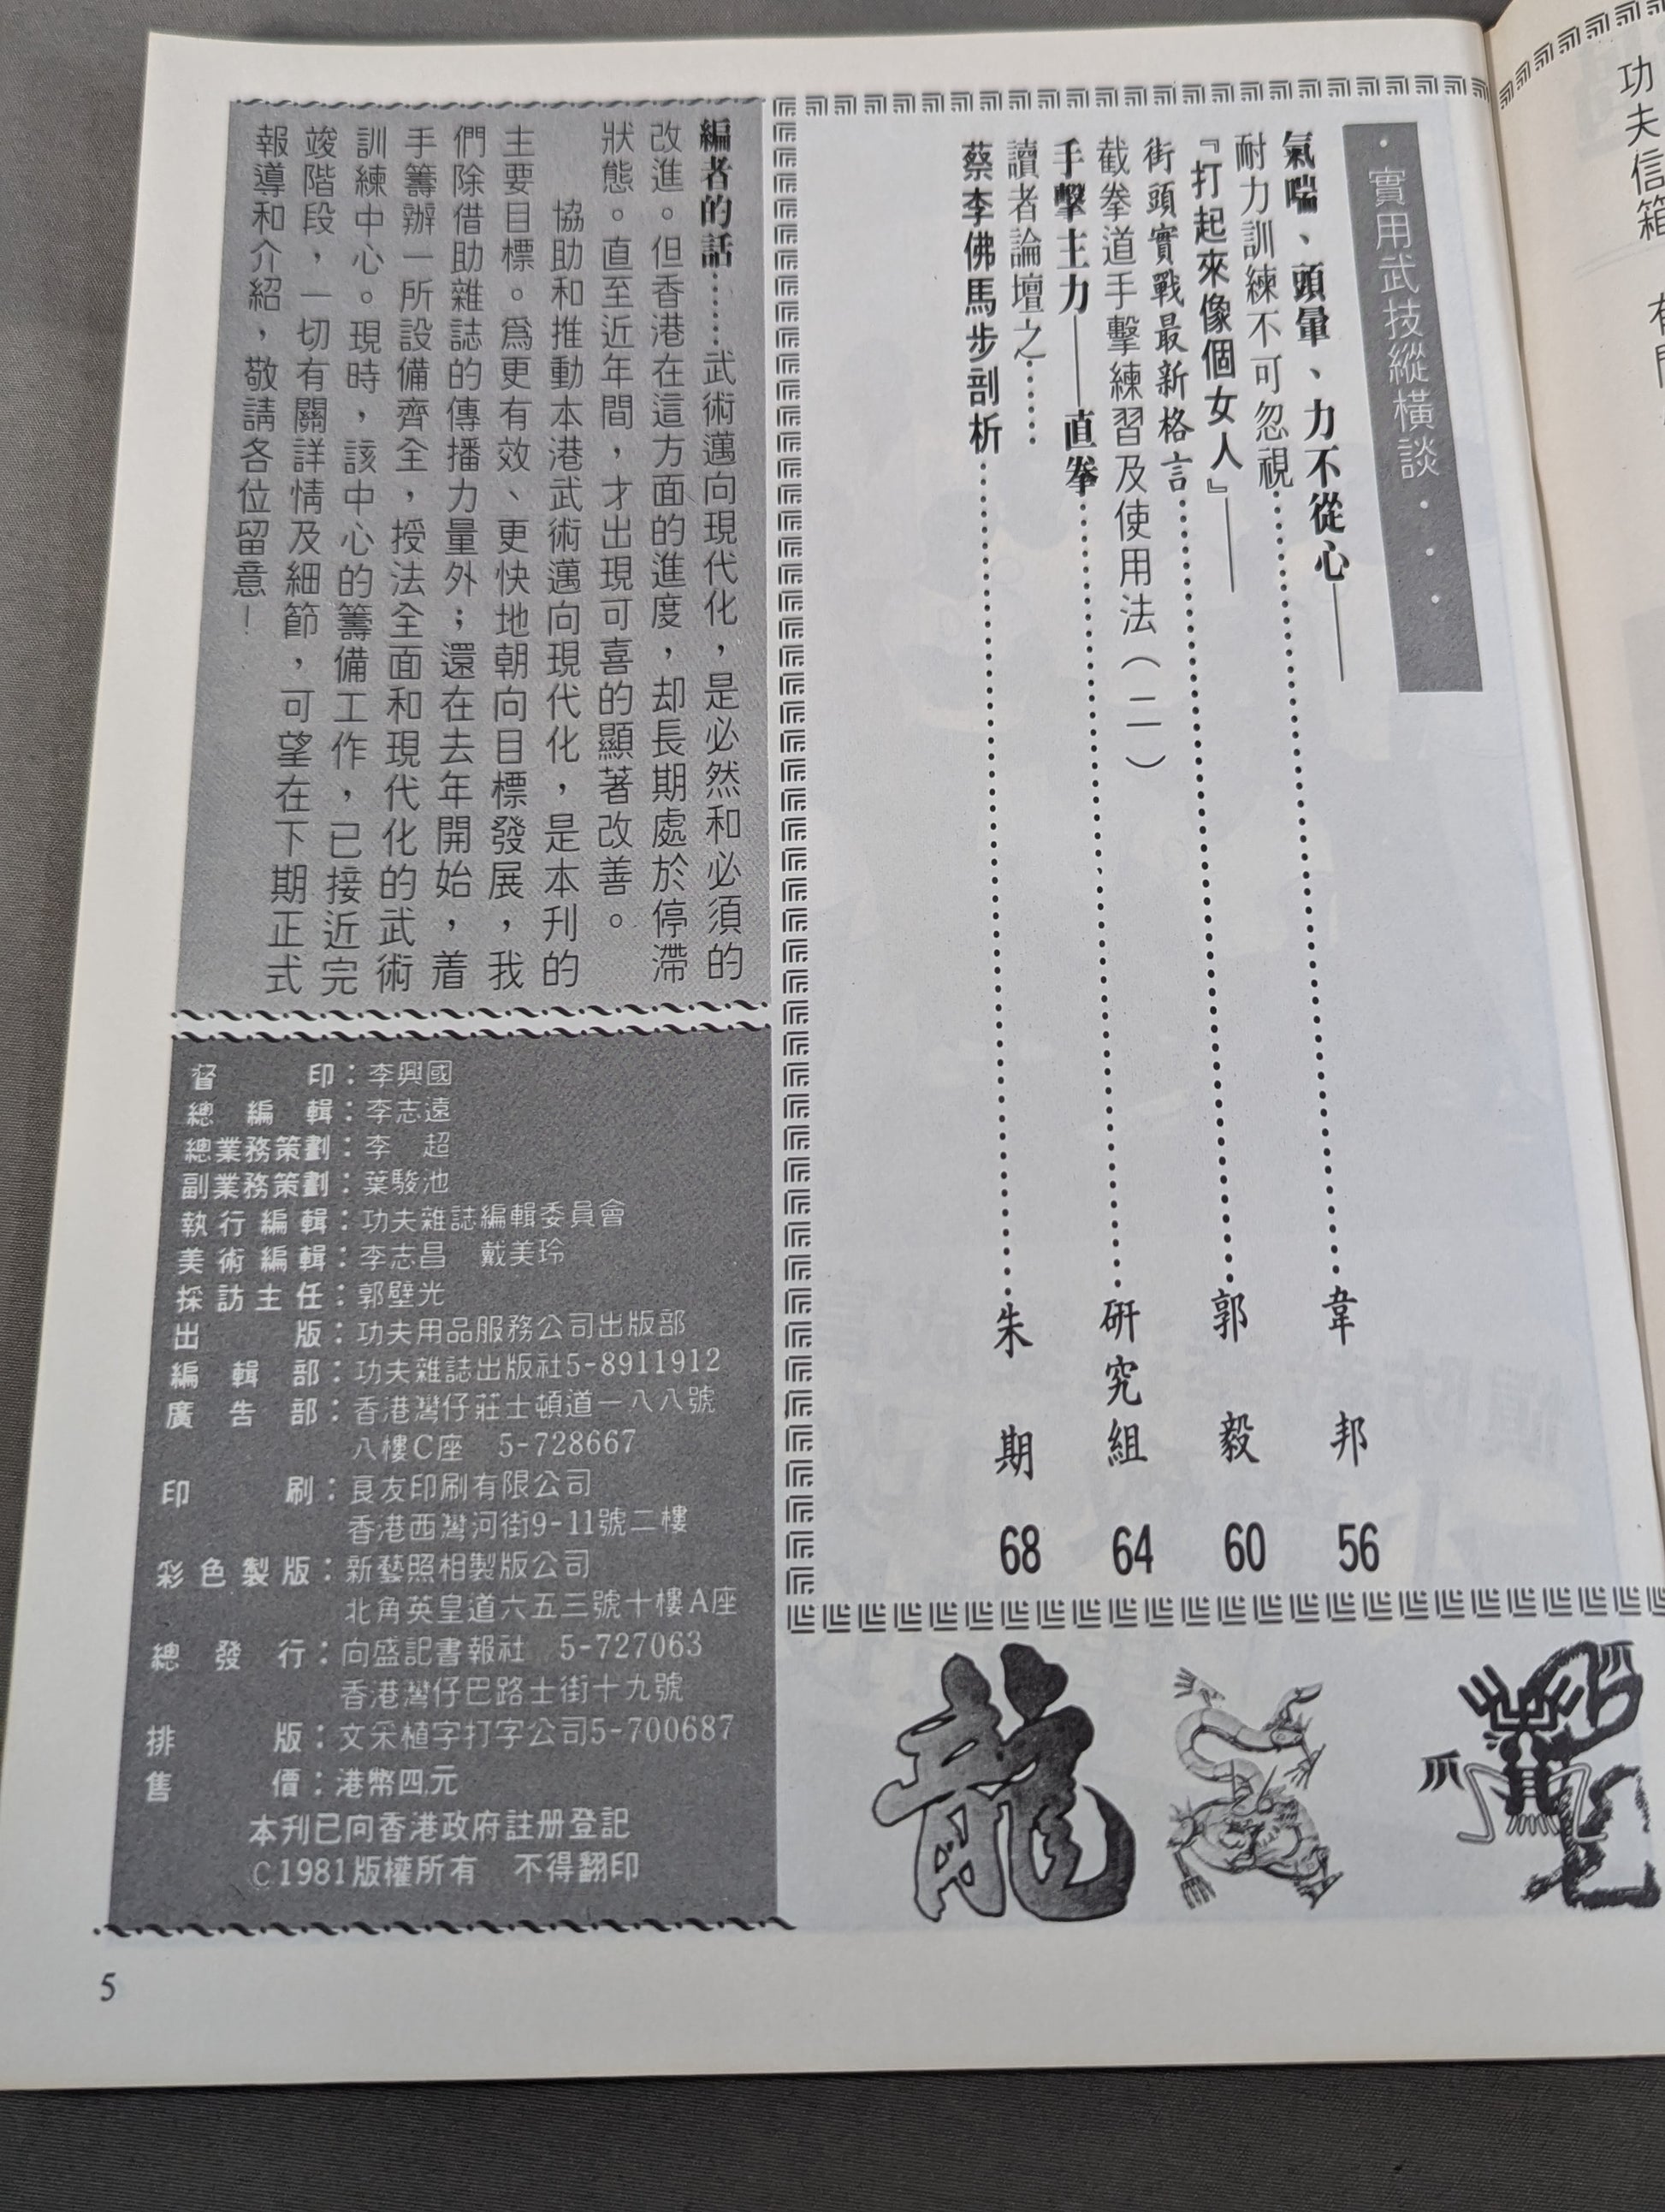 ·實用武技縱橫談···
氣喘、頭暈、力不從心——
耐力訓練不可忽視……韋邦 56
『打起來像個女人』——
街頭實戰最新格言……郭毅 60
截拳道手擊練習及使用法（二）
手擊主力——直拳……研究組 64
讀者論壇之……
蔡李佛馬步剖析……朱期 68
編者的話……武術邁向現代化，是必然和必須的
改進。但香港在這方面的進度，却長期處於停滯
狀態。直至近年間，才出現可喜的顯著改善。
協助和推動本港武術邁向現代化，是本刊的
主要目標。爲更有效、更快地朝向目標發展，我
們除借助雜誌的傳播力量外；還在去年開始，着
手籌辦一所設備齊全，授法全面和現代化的武術
訓練中心。現時，該中心的籌備工作，已接近完
竣階段，一切有關詳情及細節，可望在下期正式
報導和介紹，敬請各位留意！
督印：李興國
總編輯：李志遠
總業務策劃：李　超
副業務策劃：葉駿池
執行編輯：功夫雜誌編輯委員會
美術編輯：李志昌　戴美玲
採訪主任：郭壁光
出版：功夫用品服務公司出版部
編輯部：功夫雜誌出版社5-8911912
廣告部：香港灣仔莊士頓道一八八號
八樓C座　5-728667
印刷：良友印刷有限公司
香港西灣河街9-11號二樓
彩色製版：新藝照相製版公司
北角英皇道六五三號十樓A座
總發行：向盛記書報社　5-727063
香港灣仔巴路士街十九號
排版：文采植字打字公司5-700687
售價：港幣四元
本刊已向香港政府註册登記
©1981版權所有　不得翻印
龍
5
功夫信箱